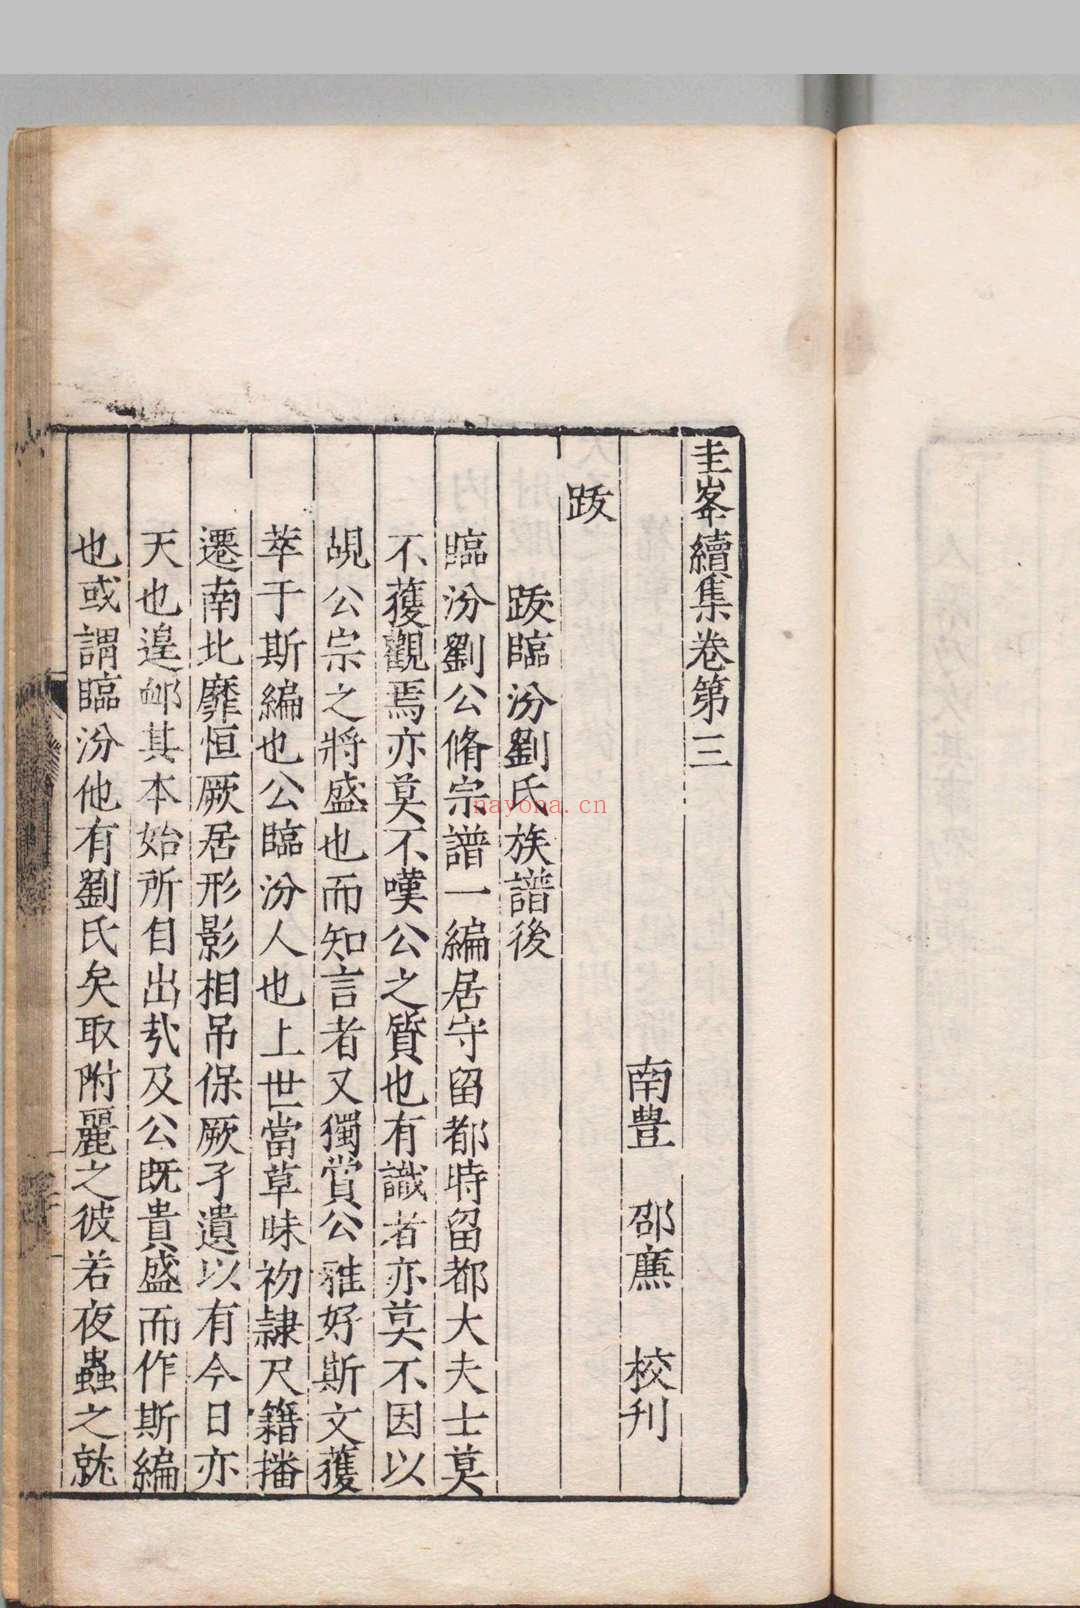 圭峯續集卷第三
南豊 邵廉 校刊
跋
跋臨汾劉氏族譜後
臨汾劉公脩宗譜一編居守留都時留都大夫士莫
不獲觀焉亦莫不嘆公之質也有識者亦莫不因以
覘公宗之將盛也而知言者又獨賞公雅好斯文獲
萃于斯編也公臨汾人也上世當草昧初隷尺籍播
遷南北靡恒厥居形影相吊保厥孑遺以有今日亦
天也遑卹其本始所自出㦲及公既貴盛而作斯編
也或謂臨汾他有劉氏矣取附麗之彼若夜蟲之就
nayona.cn